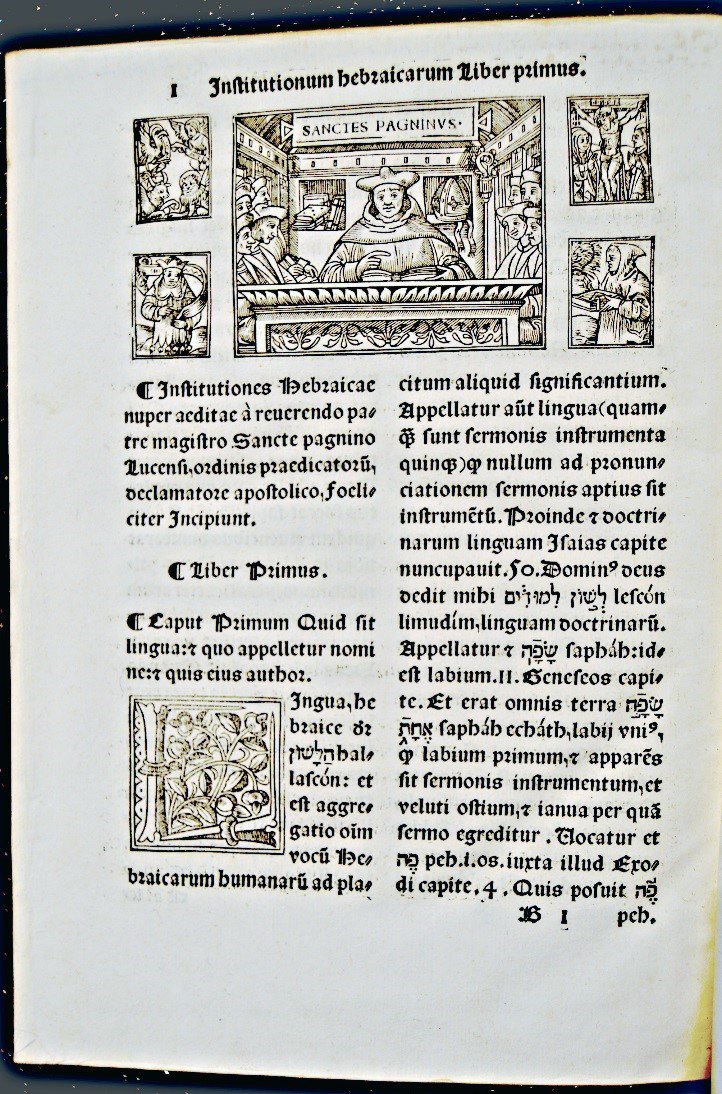 1 Institutionum hebraicarum Liber primus.
SANCTES PAGNINVS.
¶ Institutiones Hebraicae
nuper aeditae à reuerendo pa-
tre magistro Sancte pagnino
Lucensi, ordinis praedicatorũ,
declamatore apostolico, foeli-
citer Incipiunt.
¶ Liber Primus.
¶ Caput Primum Quid sit
lingua: ⁊ quo appelletur nomi
ne: ⁊ quis eius author.
Lingua, he
braice dr
הַלָּשׁוֹן hal-
lascón: et
est aggre-
gatio oĩm
vocũ He-
braicarum humanarũ ad pla-
citum aliquid significantium.
Appellatur aũt lingua (quam-
q̃ sunt sermonis instrumenta
quinqꝫ) ꝙ nullum ad pronun-
ciationem sermonis aptius sit
instrumẽtũ. Proinde ⁊ doctri-
narum linguam Isaias capite
nuncupauit. 50. Dominꝰ deus
dedit mihi לְשׁוֹן לִמּוּדִים lescón
limudím, linguam doctrinarũ.
Appellatur ⁊ שָׂפָה saphâh: id-
est labium. II. Geneseos capi-
te. Et erat omnis terra שָׂפָה
אֶחָת saphâh echáth, labij vniꝰ,
ꝙ labium primum, ⁊ apparẽs
sit sermonis instrumentum, et
veluti ostium, ⁊ ianua per quã
sermo egreditur. Uocatur et
פֶּה peh. i. os. iuxta illud Exo-
di capite. 4. Quis posuit פֶּה
B 1 peh.